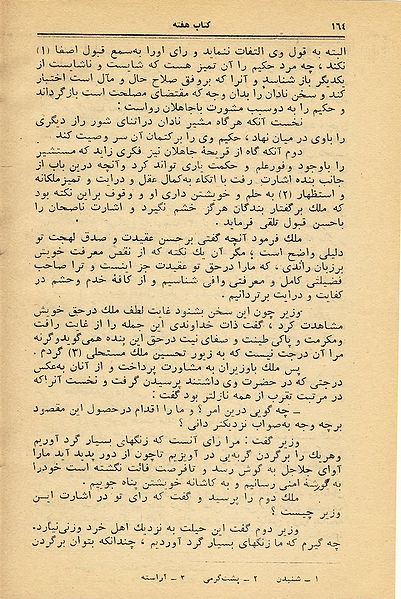 ۱۶٤
کتاب هفته
البته به قول وی التفات ننماید و رای اورا به‌سمع قبول اصفا (۱)
نکند ، چه مرد حکیم را آن تمیز هست که شایست و ناشایست از
یکدیگر باز شناسد و آنرا که بروفق صلاح حال و مآل است اختیار
کند و سخن نادان را بدان وجه که مقتضای مصلحت است بازگرداند
و حکیم را به دوسبب مشورت باجاهلان رواست :
نخست آنکه هرگاه مشیر نادان دراثنای شور راز دیگری
را باوی در میان نهاد ، حکیم وی را برکتمان آن سر وصیت کند .
دوم آنکه گاه از قریحهٔ جاهلان نیز فکری زاید که مستشیر
را باوجود وفورعلم و حکمت یاری تواند کرد وآنچه درین باب از
جانب بنده اشارت رفت با اتکاء به‌کمال عقل و درایت و تمیزملکانه
و استظهار (۲) به حلم و خویشتن داری او و وقوف براین نکته بود
که ملک برگفتار بندگان هرگز خشم نگیرد و اشارت ناصحان را
باحسن قبول تلقی فرماید .
ملک فرمود آنچه گفتی برحسن عقیدت و صدق لهجت تو
دلیلی واضح است ؛ مگر آن یک نکته که از نقص معرفت خویش
برزبان راندی ، که مارا درحق تو عقیدت جز اینست و ترا صاحب
فضیلتی کامل و معرفتی وافی شناسیم و از کافهٔ خدم وحشم در
کفایت و درایت برتردانیم .
وزیر چون این سخن بشنود غایت لطف ملک درحق خویش
مشاهدت کرد ، گفت ذات خداوندی این جمله را از غایت رافت
ومکرمت و پاکی طینت و صفای نیت درحق این بنده همی‌گویدوگرنه
مرا آن درجت نیست که به زیور تحسین ملک مستحلی (۳) گردم .
پس ملک باوزیران به مشاورت پرداخت و از آنان به‌عکس
درجتی که در حضرت وی داشتند پرسیدن گرفت و نخست آنراکه
در مرتبت تقرب از همه نازلتر بود گفت :
ــ چه گویی درین امر ؟ و ما را اقدام درحصول این مقصود
برچه وجه به‌صواب نزدیکتر دانی ؟
وزیر گفت : مرا رای آنست که زنگهای بسیار گرد آوریم
وهریك را برگردن گربه‌یی در آویزیم تاچون از دور پدید آید مارا
آوای جلاجل به گوش رسد و تافرصت فائت نگشته است خودرا
به گوشهٔ امنی رسانیم و به کاشانه خویشتن پناه جوییم .
ملک دوم را پرسید و گفت که رای تو در اشارت ایــن
وزیر چیست ؟
وزیر دوم گفت این حیلت به نزدیک اهل خرد وزنی‌نیارد.
چه گیرم که ما زنگهای بسیار گرد آوردیم ، چندانکه بتوان برگردن
۱ ــ شنیدن ۲ ــ پشت‌گرمی ۳ ــ آراسته